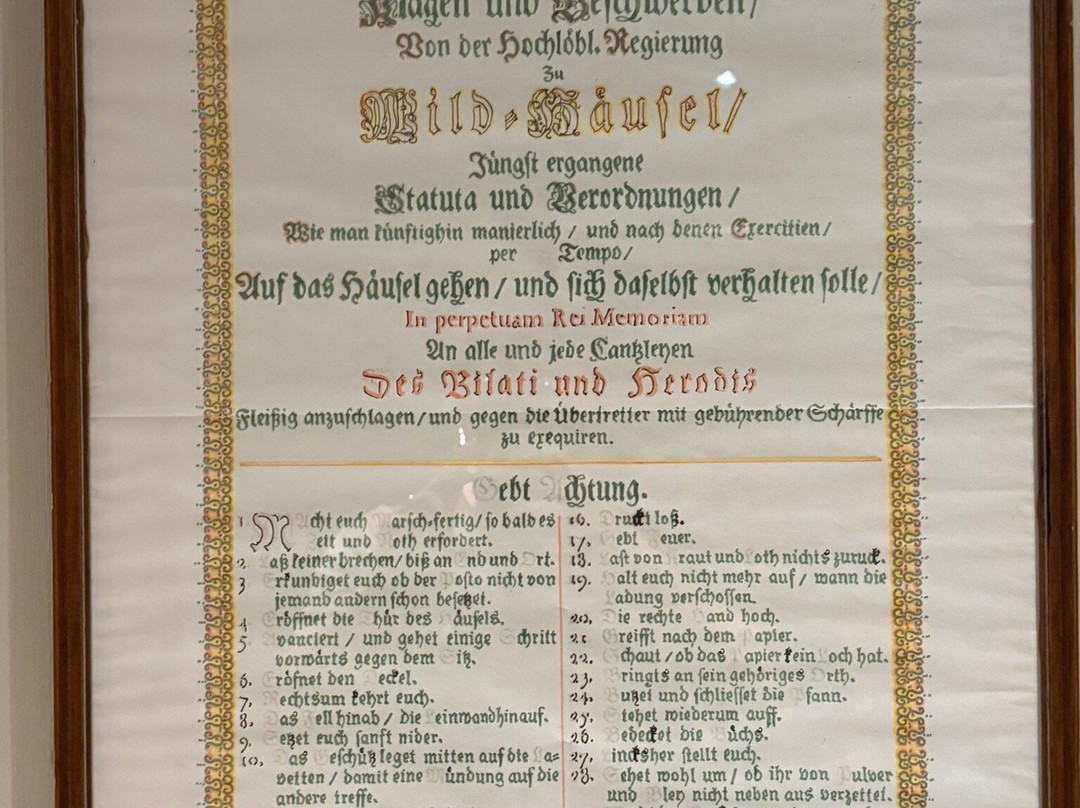 Klagen und Beschwerden/
Von der Hochlöbl. Regierung
Zu
Wild-Häusel/
Jüngst ergangene
Statuta und Verordnungen/
Wie man künftighin manierlich/ und nach denen Exercitien/
per Tempo/
Auf das Häusel gehen/ und sich daselbst verhalten solle/
In perpetuam Rei Memoriam
An alle und jede Cantzleyen
Des Pilati und Herodis
Fleißig anzuschlagen/ und gegen die Übertretter mit gebührender Schärffe
zu exequiren.
Gebt Achtung.
1 Macht euch Marsch-fertig/ so bald es
Zeit und Noth erfordert.
2. Laß keiner brechen/ biß an End und Ort.
3 Erkundiget euch ob der Posto nicht von
jemand andern schon besetzet.
4 Eröffnet die Thür des Häusels.
5 Avanciert/ und gehet einige Schritt
vorwärts gegen dem Sitz.
6. Eröfnet den Deckel.
7, Rechtsum kehrt euch.
8. Das Fell hinab/ die Leinwand hinauf.
9. Setzet euch sanft nider.
10, Das Geschütz leget mitten auf die La=
vetten/ damit eine Mündung auf die
andere treffe.
16. Druckt loß.
17. Gebt Feuer.
18. Last von Kraut und Loth nichts zuruck.
19. Halt euch nicht mehr auf/ wann die
Ladung verschossen.
20, Die rechte Hand hoch.
21 Greifft nach dem Papier.
22, Schaut/ ob das Papier kein Loch hat.
23, Bringts an sein gehöriges Orth.
24, Butzet und schliesset die Pfann.
25, Stehet wiederum auff.
26. Bedecket die Büchs.
27, Lincksher stellt euch.
28, Sehet wohl um/ ob ihr von Pulver
und Bley nicht neben aus verzettet.